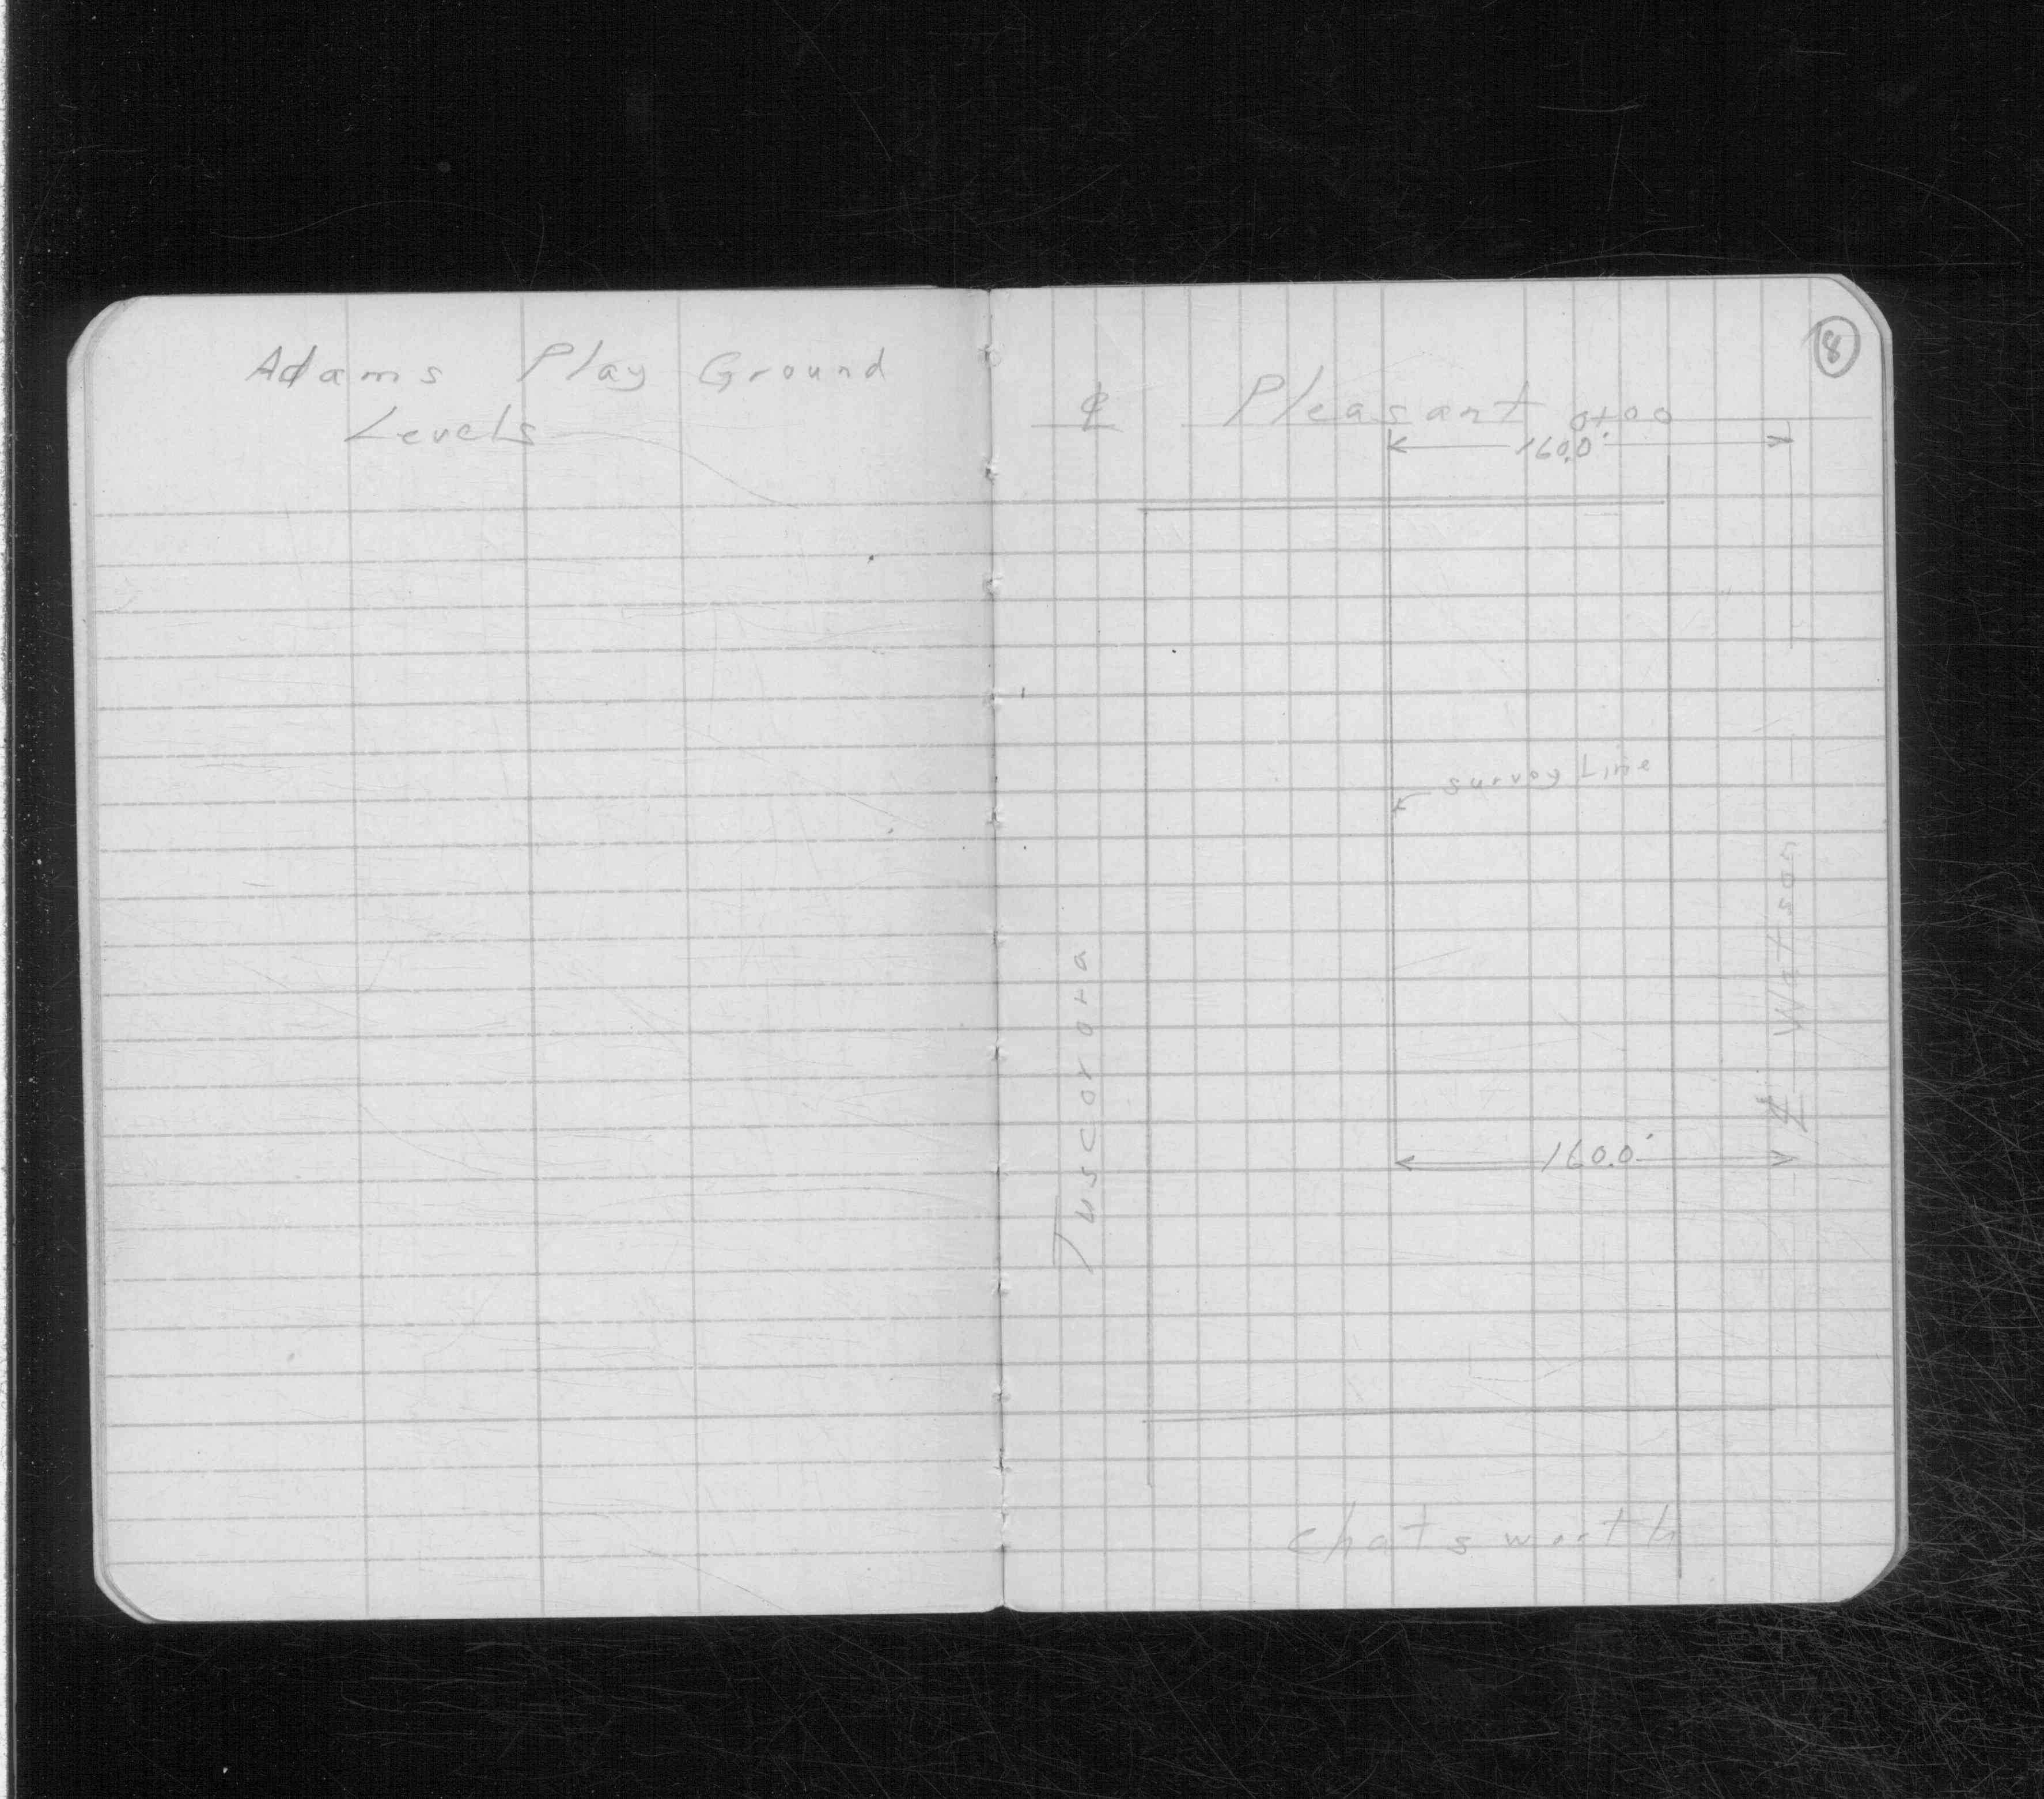 Adams Play Ground
Levels
8
℄ Pleasant 0+00
160.0'
survey Line
℄ Watson
Tuscorora
160.0'
chatsworth